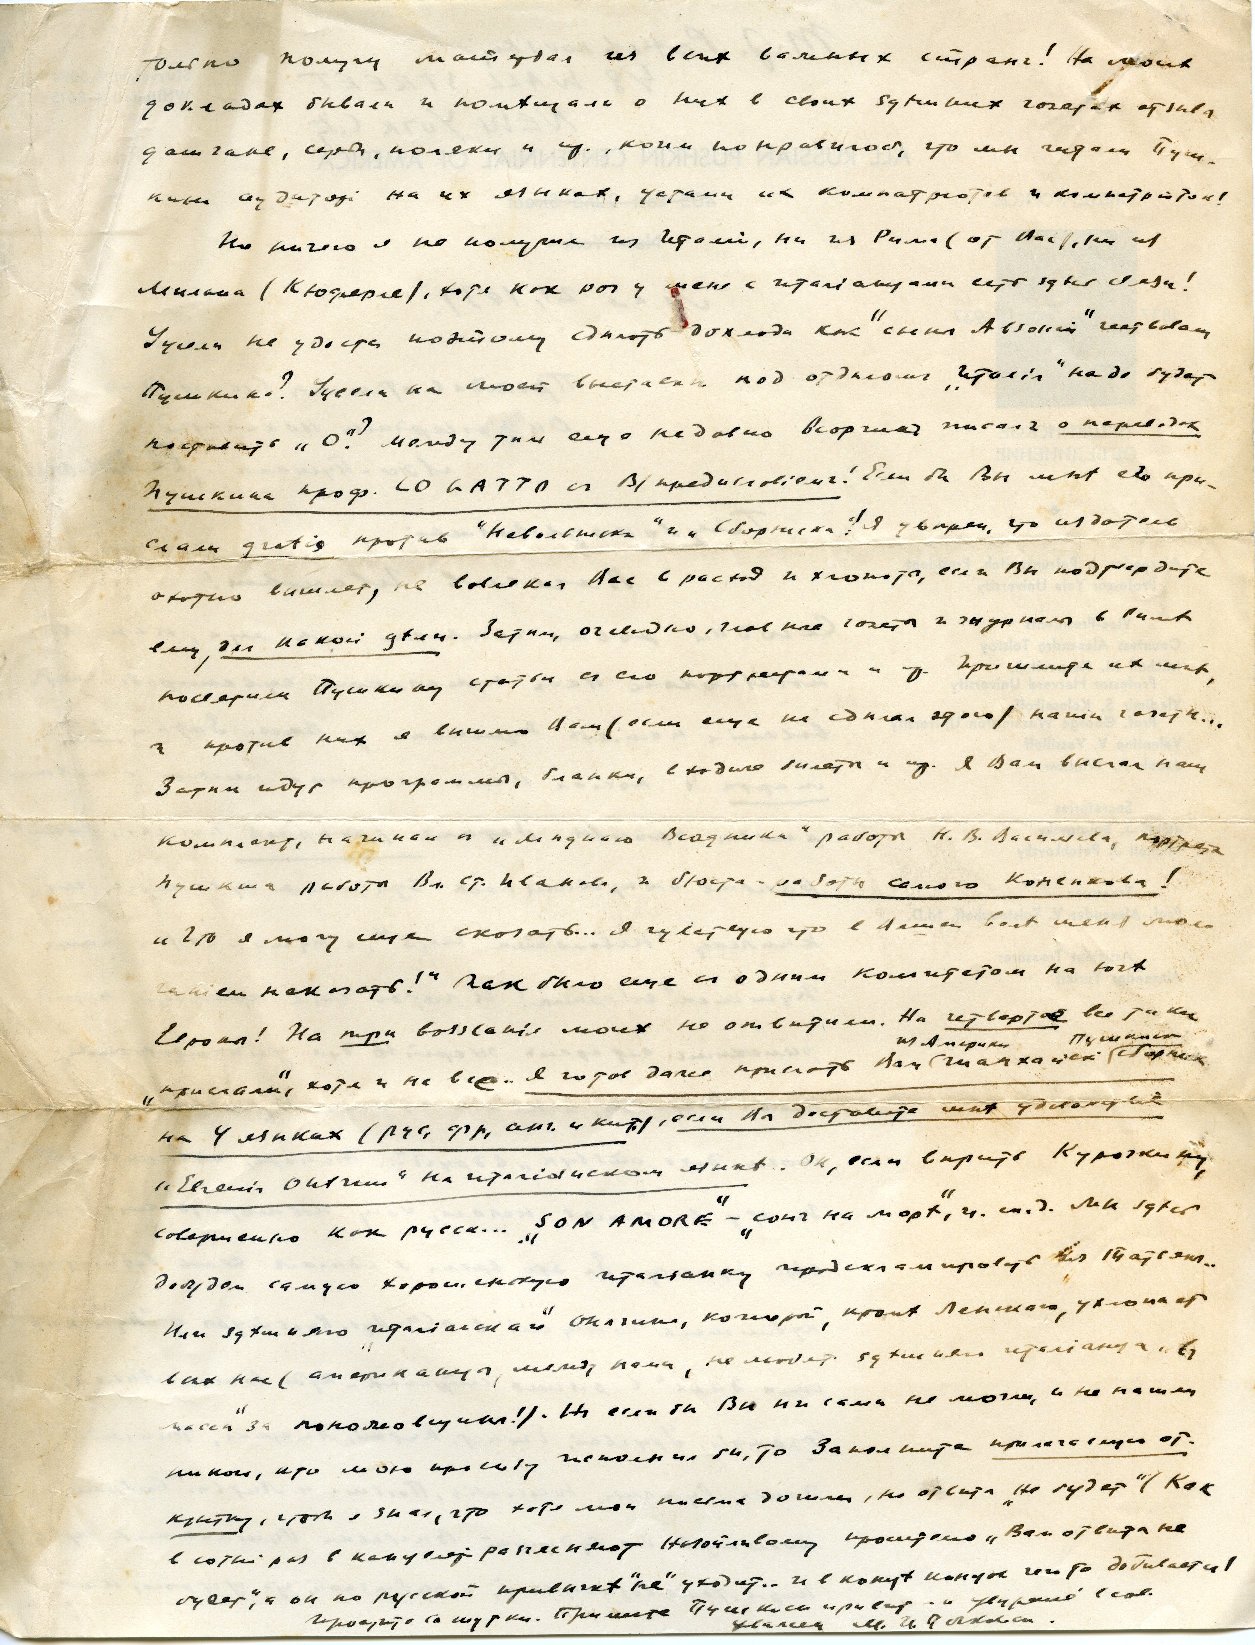 только получу матерiал из всех важных стран! На моих
докладах бывали и помѣщали о них в своих здѣшних газетах отзывы
датчане, сербы, поляки и пр., коим понравилось, что мы читали Пуш-
кина аудиторiи на их языках, устами их компатриотов и компатриоток!
Но ничего я не получил из Италiи, ни из Рима (от Вас), ни из
Милана (Кюфферле), хотя как раз у меня с италiанцами есть здѣсь связи!
Ужели не удастся поэтому сдѣлать доклада как "сыны Авзонiи" чествовали
Пушкина? Ужели на моей выставкѣ под отдѣлом "Италiя" надо будет
поставить „О"? Между тѣм еще недавно Возрожд. писало о переводах
Пушкина проф. LO GATTO с В/предисловiем! Если бы Вы мнѣ его при-
слали gratis против "Невольника" и „Сборника"! Я увѣрен, что издатель
охотно вышлет, не вовлекая Вас в расход и хлопоты, если Вы подтвердите
ему, для какой цѣли. Затѣм, очевидно, главные газеты и журналы в Римѣ
посвятили Пушкину статьи с его портретами и пр. Пришлите их мнѣ,
и против них я вышлю Вам (если еще не сдѣлал этого) наши газеты...
Затѣм идут программы, бланки, входные билеты и пр. Я Вам выслал наш
комплект, начиная с „Мѣднаго Всадника" работы Н. В. Васильева, портрета
Пушкина работы Вл. Ст. Иванова, и бюста - работы самого Коненкова!
„Что я могу еще сказать... Я чувствую что в Вашей волѣ меня мол-
чанiем наказать!" Так было еще с одним комитетом на югѣ
Европы! На три воззванiя моих не отвѣтили. На четвертое все таки
„прислали", хотя и не все.. Я готов даже прислать Вам из Америки Шанхайскiй Пушкинск. Сборник
на 4 языках (рус, фр, анг. и кит.), если Вы доставите мнѣ удовольствiе
„Евгенiя Онѣгина" на италiянском языкѣ. Он, если вѣрить Курочкину,
совершенно как русск... „SON AMORE" - „сонъ на морѣ", и т.д. Мы здѣсь
добудем самую хорошенькую итальянку продекламировать из Татьяны..
Или здѣшняго „италiанскаго" Онѣгина, который, кромѣ Ленскаго, ухлопает
всѣх нас (американцы, между нами, не любят здѣшних италiанцев „в
массѣ" за поножовщину!). Но если бы Вы ни сами не могли, и не нашли
никого, кто мою просьбу исполнил бы, то Заполните прилагаемую от-
крытку, чтоб я знал, что хотя мои письма дошли, но отвѣта „не будет" (Как
в сотый раз в канцелярiи разъясняют назойливому просителю „Вам отвѣта не
будет", а он по русской привычкѣ "не" уходит.. и в концѣ концов чего то добивается!
Простите за шутки. Примите Пушкинскiй привѣт и увѣренiе в сов.
уваженiи